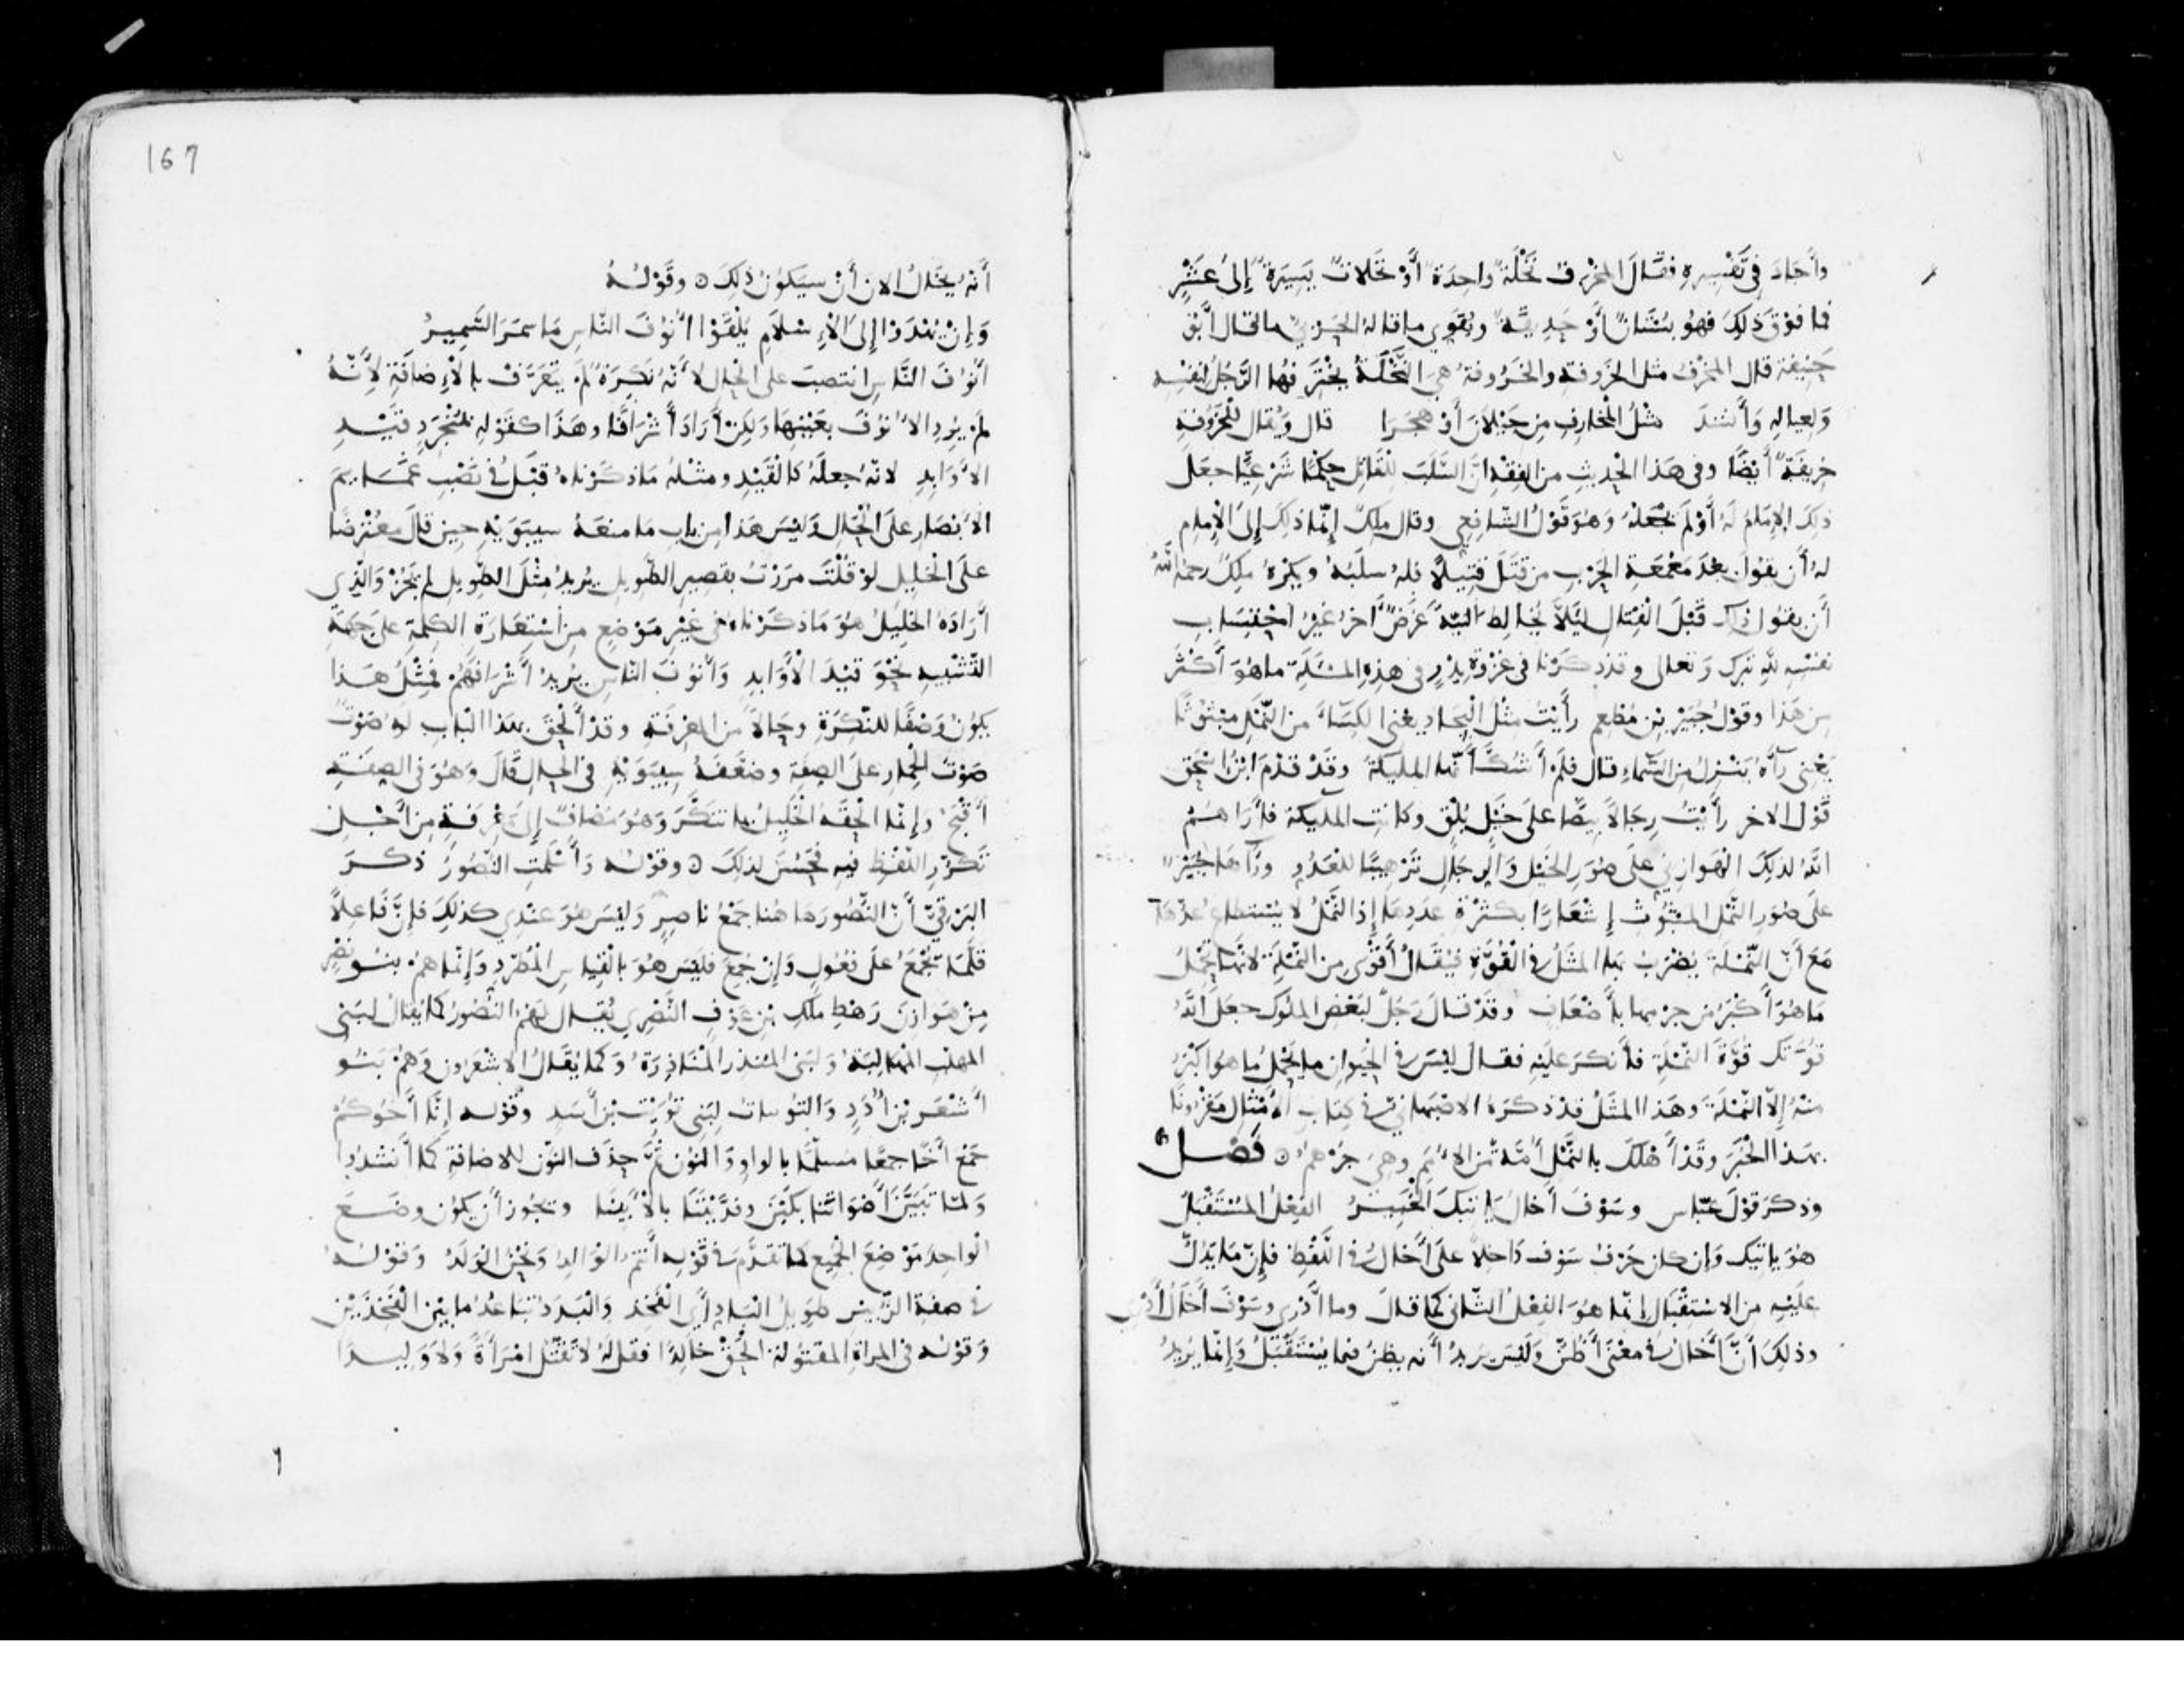 وأجاد في تفسيره فقال المخرف نخلة واحدة أو نخلات يسيرة إلى عشر
فما فوق ذلك فهو بستان أو حديقة ويقوي ما قاله الحربي ما قال أبو
حنيفة قال المخرف مثل الخروفة والخروفة هي النخلة يخترفها الرجل لنفسه
ولعياله وأنشد مثل المخارف من جيلان أو هجرا قال ويقال للخروفة
خريفة أيضا وفي هذا الحديث من الفقه ان السلب للقاتل حكما شرعيا جعل
ذلك الإمام له أو لم يجعله وهو قول الشافعي وقال ملك إنما ذلك إلى الإمام
له أن يقول بعد معمعة الحرب من قتل قتيلا فله سلبه ويكره ملك رحمه الله
أن يقول ذلك قبل القتال ليلا يخالط النية غرض آخر غير احتساب
نفسه لله تبرك وتعالى وقد ذكرنا في غزوة بدر في هذه المسئلة ما هو أكثر
من هذا وقول جبير بن مطعم رأيت مثل البجاد يعني الكساء من النمل مبثوثا
يعني رآه ينزل من السماء قال فلم أشك أنها المليكة وقد قدم ابن اسحق
قول الاخر رأيت رجالا بيضا على خيل بلق وكانت المليكة فأراهم
الله لذلك الهوازني على صور الخيل والرجال ترهيبا للعدو ورآها جبير
على صور النمل المبثوث إشعارا بكثرة عددها إذ النمل لا يستطاع عدها
مع أن النملة يضرب بها المثل في القوة فيقال أقوى من النملة لانها تحمل
ما هو أكبر من جرمها بأضعاف وقد قال رجل لبعض الملوك جعل الله
قوتك قوة النملة فأنكر عليه فقال ليس في الحيوان ما يحمل ما هو اكبر
منه إلا النملة وهذا المثل قد ذكره الاصبهاني في كتاب الأمثال مقرونا
بهذا الخبر وقد أهلك بالنمل أمة من الأمم وهي جرهم ۞ فصل
وذكر قول عباس وسوف أخال يأتيك الخبير الفعل المستقبل
هو ياتيك وإن كان حرف سوف داخلا على أخال في اللفظ فإن ما يدل
عليه من الاستقبال إنما هو الفعل الثاني كما قال وما أدري وسوف أخال أدري
وذلك أن أخال في معنى أظن وليس يريد أنه يظن فيما يستقبل وإنما يريد
167
أنه يخال الان أن سيكون ذلك ۞ وقوله
وإن يهتدوا إلى الإسلام يلقوا أنوف الناس ما سمر السمير
أنوف الناس انتصب على الحال لأنه نكرة لم يتعرف بالإضافة لأنه
لم يرد الأنوف بعينها ولكن أراد أشرافا وهذا كقوله بمنجرد قيد
الأوابد لانه جعله كالقيد ومثله ما ذكرناه قبل في نصب غمايم
الأبصار على الحال وليس هذا من باب ما منعه سيبويه حين قال معترضا
على الخليل لو قلت مررت بقصير الطويل يريد مثل الطويل لم يجز والذي
أراده الخليل هو ما ذكرناه في غير موضع من استعارة الكلمة على جهة
التشبيه نحو قيد الأوابد وأنوف الناس يريد أشرافهم فمثل هذا
يكون وصفا للنكرة وحالا من المعرفة وقد ألحق بهذا الباب له صوت
صوت الحمار على الصفة وضعفه سيبويه في الحال قال وهو في الصفة
أقبح وإنما الحقه الخليل بما تنكر وهو مضاف إلى معرفة من أجل
تكرر اللفظ فيه فحسن لذلك ۞ وقوله وأسلمت النصور ذكر
البرقي أن النصور هاهنا جمع ناصر وليس هو عندي كذلك فإن فاعلا
قلما يجمع على فعول وإن جمع فليس هو بالقياس المطرد وإنما هم بنو نصر
من هوازن رهط ملك بن عوف النصري يقال لهم النصور كما يقال لبني
المهلب المهالبة ولبني المنذر المناذرة وكما يقال الاشعرون وهم بنو
أشعر بن أدد والتوسات لبني تويت بن أسد وقوله إنا أخوكم
جمع أخا جمعا مسلما بالواو والنون ثم حذف النون للاضافة كما أنشدوا
ولما تبين أصواتنا بكين وفديننا بالأبينا ويجوز أن يكون وضع
الواحد موضع الجميع كما تقدم في قوله أنتم الوالد ونحن الولد وقوله
في صفة الزبير طويل الباد أي الفخذ والبدد تباعد ما بين الفخذين
وقوله في المراة المقتولة الحق خالدا فقل له لا تقتل امرأة ولا وليدا